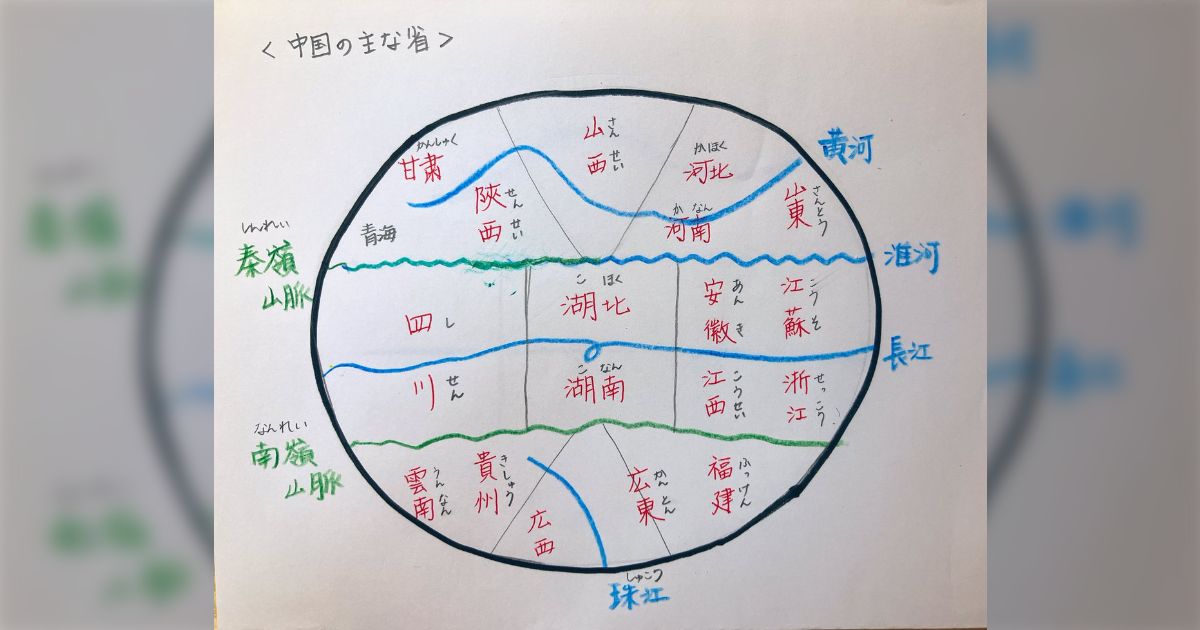 <中国の主な省>
かんしゅく
甘粛
せんせい
陝西
青海
さんせい
山西
かほく
河北
かなん
河南
さんとう
山東
黄河
しんれい
秦嶺
山脈
淮河
しせん
四川
こほく
湖北
こなん
湖南
あんき
安徽
こうそ
江蘇
こうせい
江西
せっこう
浙江
長江
なんれい
南嶺
山脈
うんなん
雲南
きしゅう
貴州
広西
かんとん
広東
ふっけん
福建
しゅこう
珠江